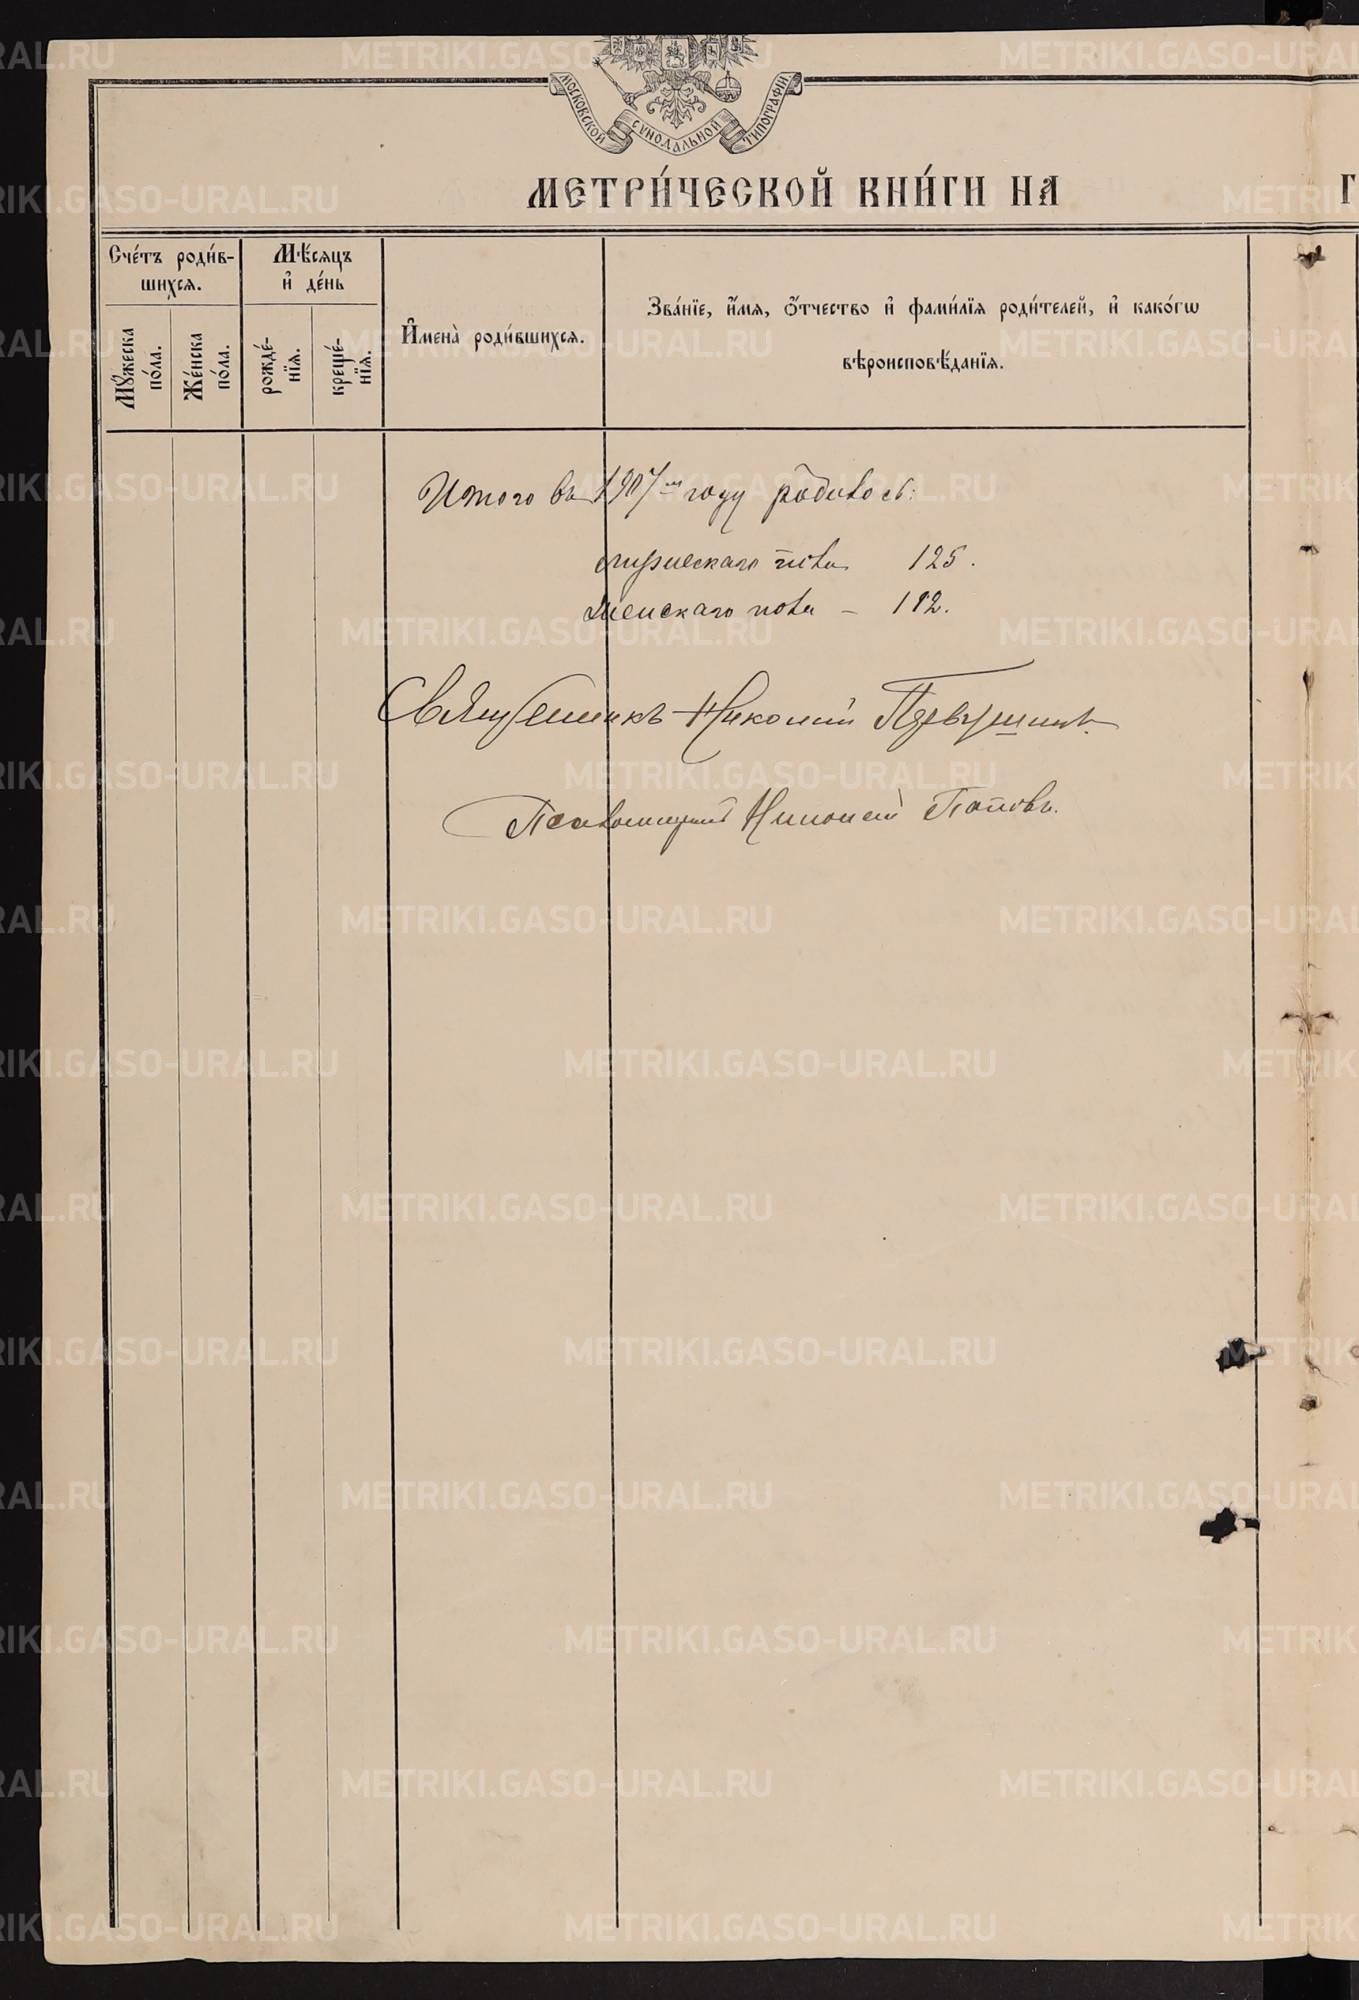 МОСКОВСКОЙ СѴНОДАЛЬНОЙ ТИПОГРАФІИ
МЕТРИ́ЧЕСКОЙ КНИ́ГИ НА
Г
Сче́тъ роди́в-
шихсѧ.
Мѣ́сѧцъ
и҆ де́нь
И҆мена̀ роди́вшихсѧ.
Зва́нїе, и҆́мѧ, ѻ҆́тчество и҆ фами́лїѧ роди́телей, и҆ како́гѡ
вѣроисповѣ́данїѧ.
Мꙋ́жеска
по́ла.
Же́нска
по́ла.
рожде́-
нїѧ.
креще́-
нїѧ.
Итого въ 1907-мъ году родилось:
мужескаго пола 125.
женскаго пола – 112.
Священникъ Николай Первушинъ.
Псаломщикъ Николай Поповъ.
METRIKI.GASO-URAL.RU